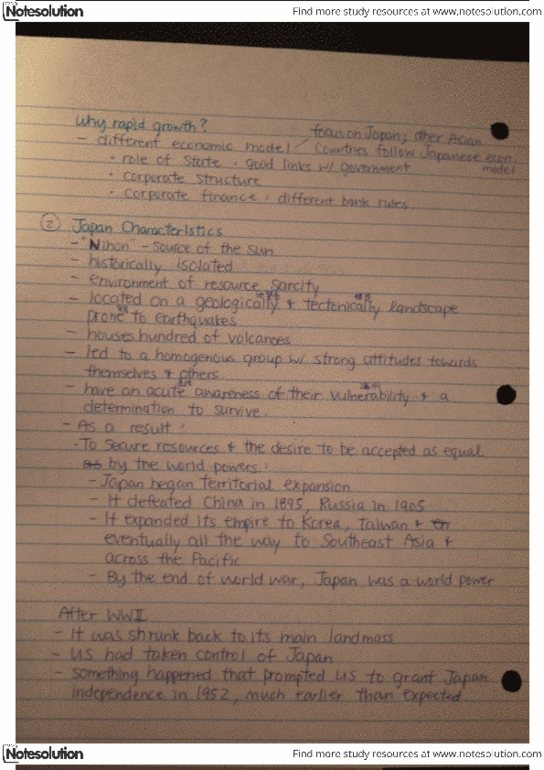 Notesolution
Find more study resources at www.notesolution.com
Why rapid growth?
focus on Japan; other Asian
- different economic model / Countries follow Japanese econ.
model
• role of State • good links w/ government
• corporate structure
• Corporate finance • different bank rules
② Japan Characteristics
- "Nihon" - source of the sun
- historically isolated
- environment of resource sarcity
- located on a geologically & tectonically landscape
prone to earthquakes
- houses hundred of volcanoes
- led to a homogenous group w/ strong attitudes towards
themselves & others
- have an acute awareness of their vulnerability & a
determination to survive.
- As a result :
• To secure resources & the desire to be accepted as equal
as by the world powers :
- Japan began territorial expansion
- It defeated China in 1895, Russia in 1905
- It expanded its empire to Korea, Taiwan &
eventually all the way to Southeast Asia &
across the Pacific
- By the end of world war, Japan was a world power
After WWII
- It was shrunk back to its main landmass
- US had taken control of Japan
- something happened that prompted US to grant Japan
independence in 1952, much earlier than expected.
Notesolution
Find more study resources at www.notesolution.com